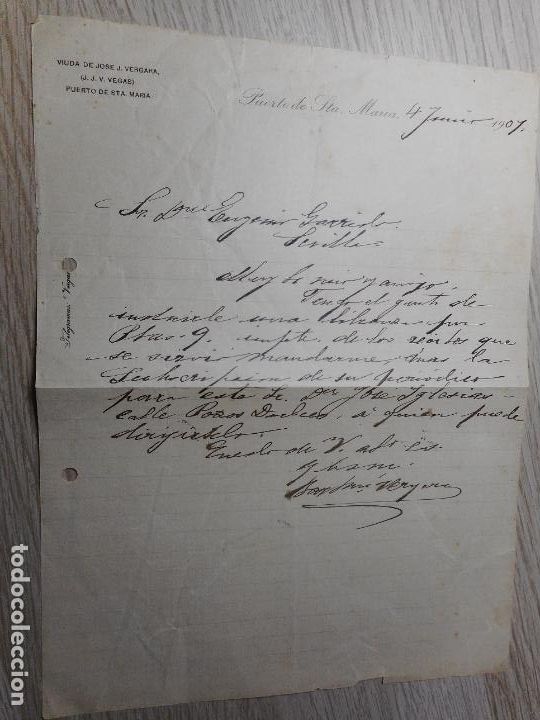 VIUDA DE JOSE J. VERGARA,
(J. J. V. VEGAS)
PUERTO DE STA. MARIA
Puerto de Sta. Maria, 4 Junio 1907.
Sr. Dn Eugenio Garrido.
Sevilla
Muy Sr. mio y amigo.
Tengo el gusto de
incluirle una libranza por
Ptas 9. impte. de los recibos que
se sirvió mandarme, mas la
Subscripcion de su periódico
para este Sr. Dn José Iglesias
calle Pozos Dulces, a quien puede
dirijirselo.
Quedo de V. affo.
q b s m
Vergara
Telegramas: Vegas
todocoleccion